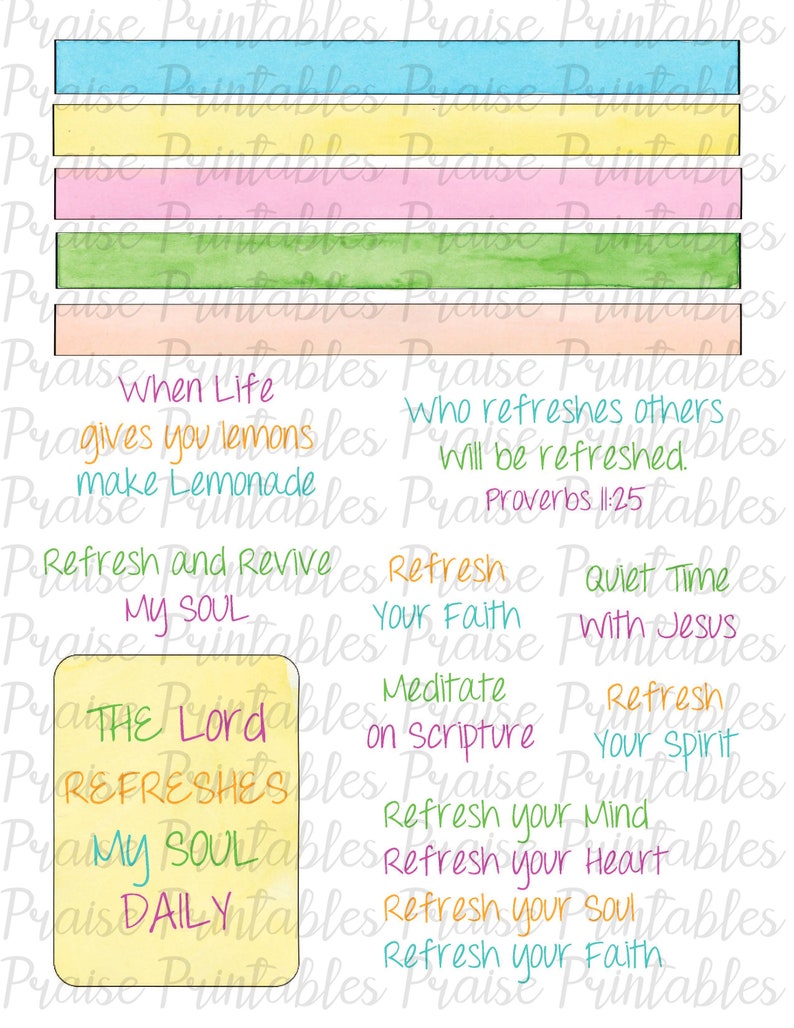 When Life
gives you lemons
make Lemonade
Who refreshes others
Will be refreshed.
Proverbs 11:25
Refresh and Revive
My SOUL
Refresh
Your Faith
Quiet Time
With Jesus
THE Lord
REFRESHES
My SOUL
DAILY
Meditate
on Scripture
Refresh
Your Spirit
Refresh your Mind
Refresh your Heart
Refresh your Soul
Refresh your Faith
Praise Printables